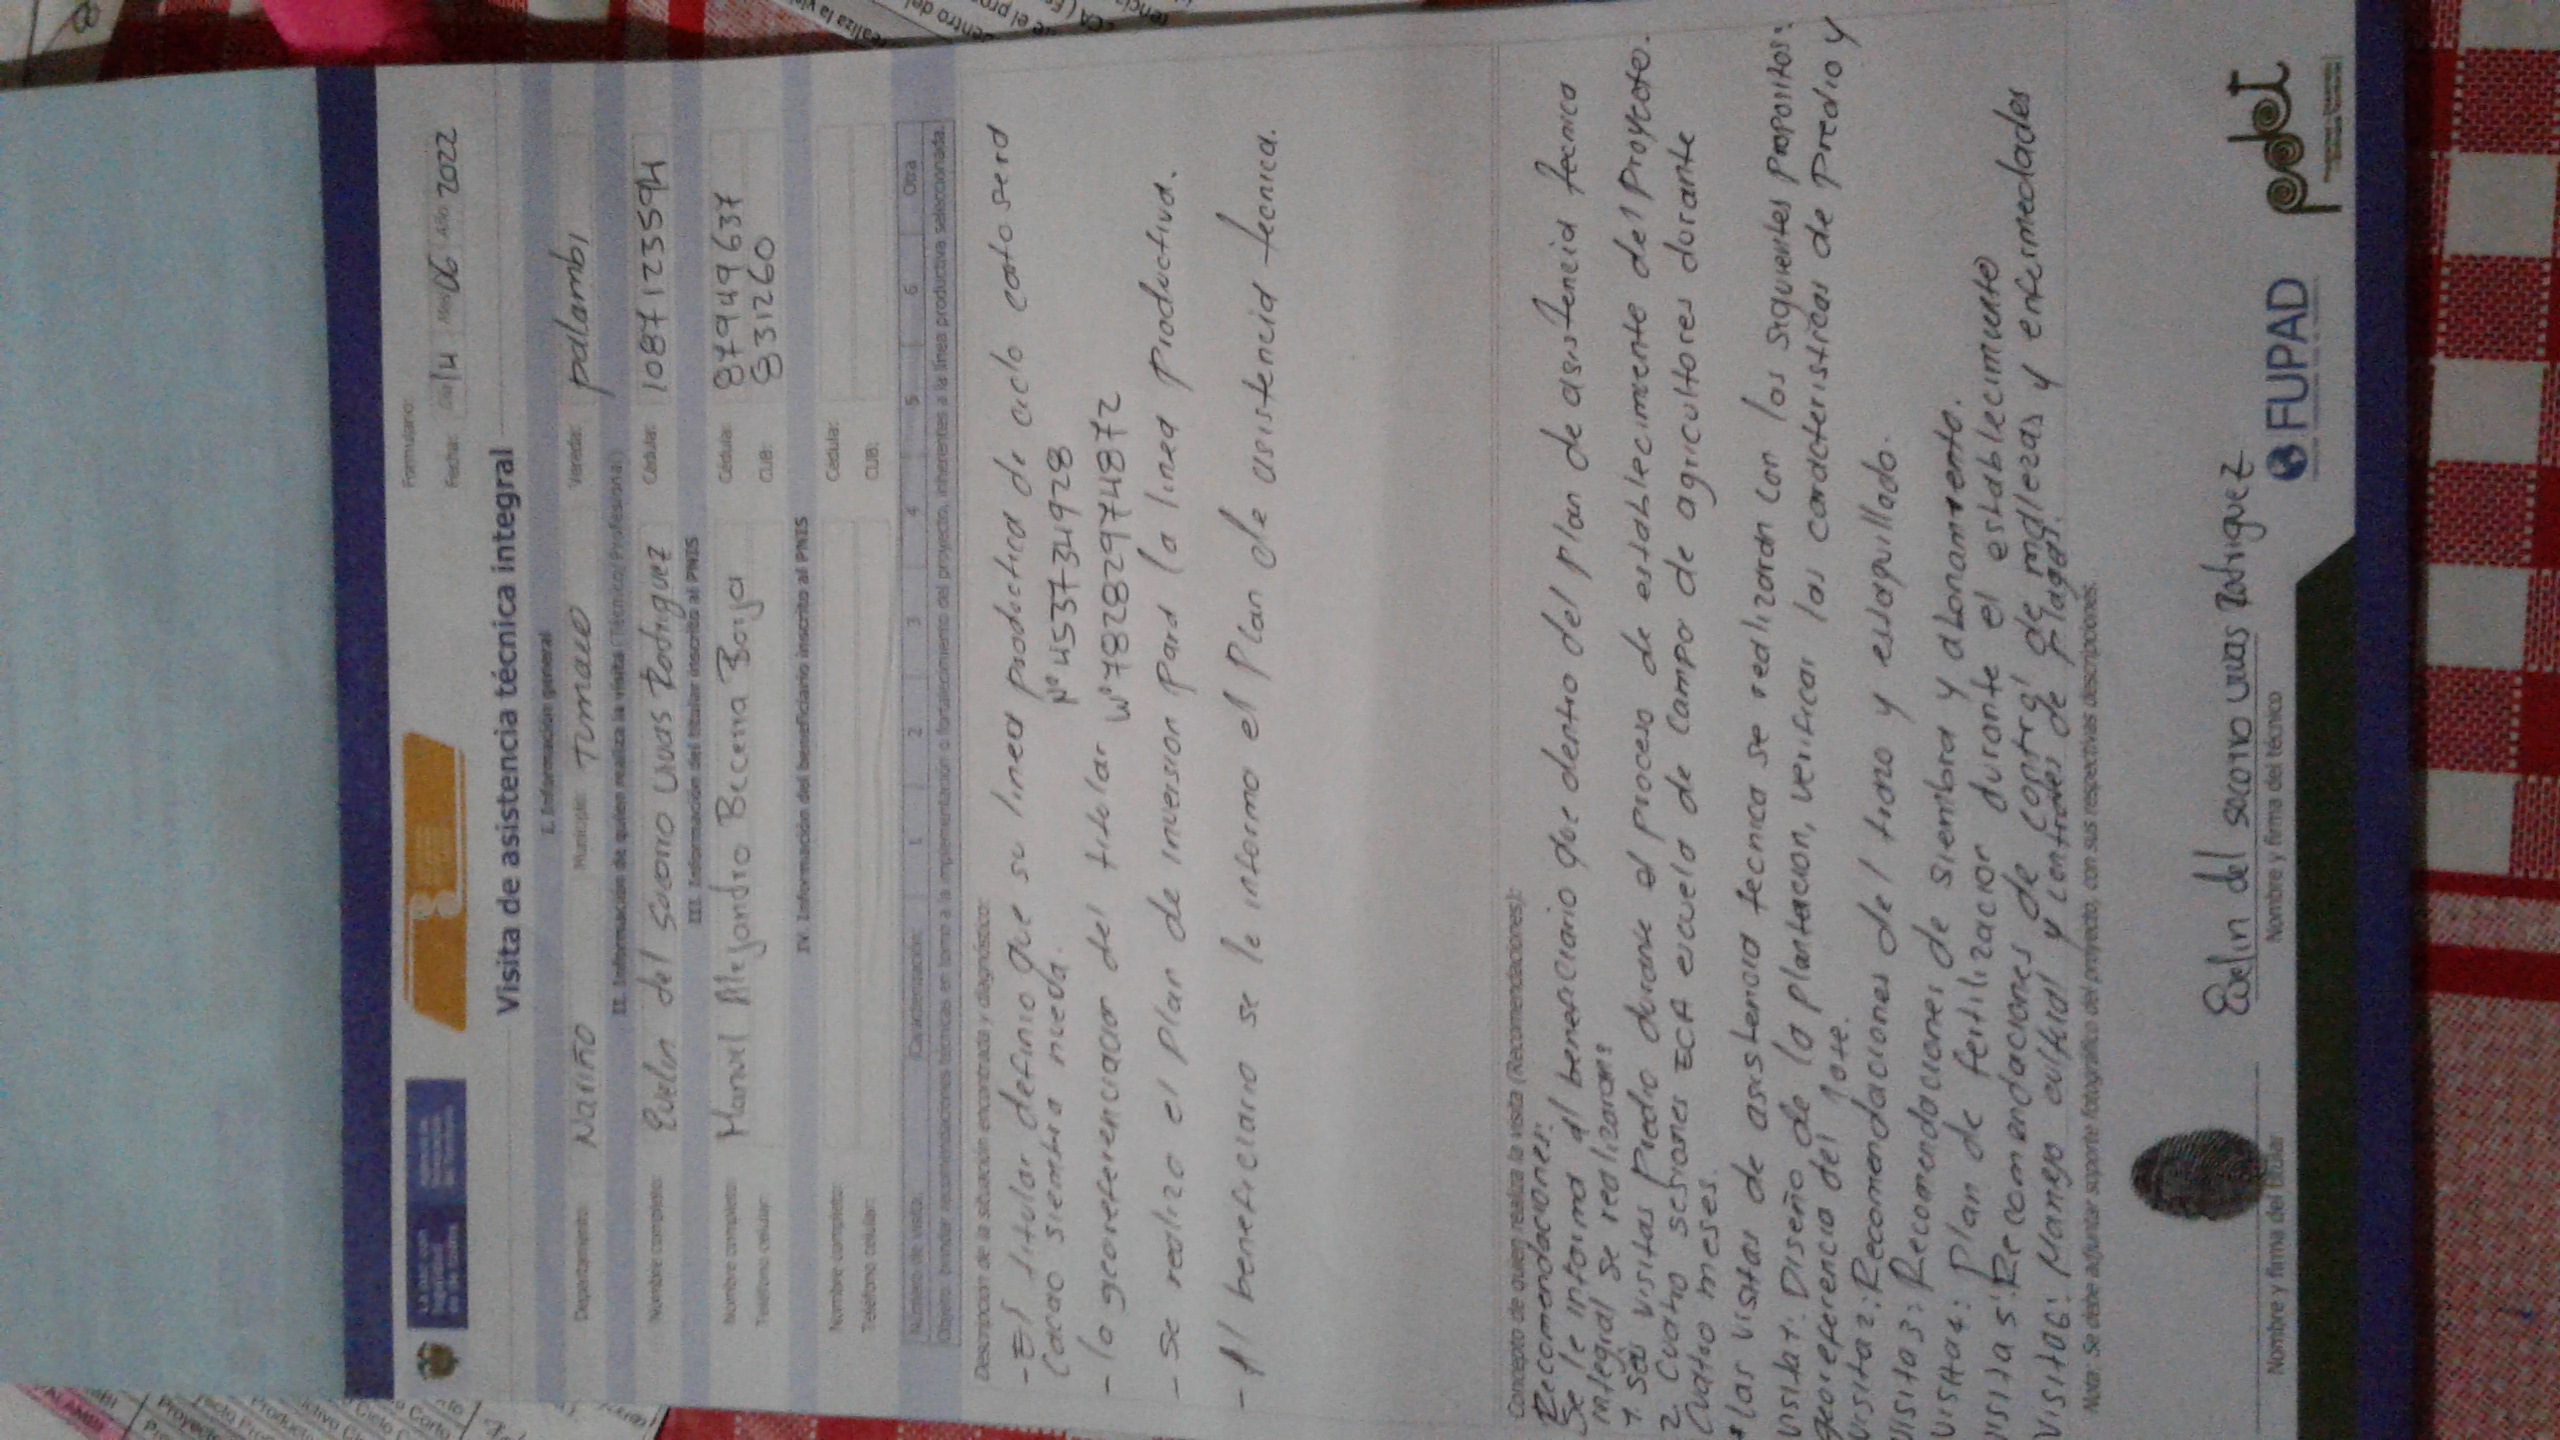 Formulario:
Fecha: Día 14 Mes 06 Año 2022
Visita de asistencia técnica integral
I. Información general
Departamento: Nariño Municipio: Tumaco Vereda: palambi
II. Información de quien realiza la visita (Técnico/Profesional)
Nombre completo: Evelin del Socorro Vivas Rodriguez Cédula: 1087123594
III. Información del titular inscrito al PNIS
Nombre completo: Manuel Alejandro Becerra Borja Cédula: 87949637
Teléfono celular: CUB: 831260
IV. Información del beneficiario inscrito al PNIS
Nombre completo: Cédula:
Teléfono celular: CUB:
Número de visita: Caracterización: 1 2 3 4 5 6 Otra
Objeto: brindar recomendaciones técnicas en torno a la implementación o fortalecimiento del proyecto, inherentes a la línea productiva seleccionada.
Descripción de la situación encontrada y diagnóstico:
- El titular definio que su linea productiva de ciclo corto será
Cacao siembra nueva. N° 4537341928
- la georeferenciacion del titular W° 78282974872
- Se realizo el plan de inversion para la linea productiva.
- Al beneficiario se le informo el Plan de asistencia tecnica.
Concepto de quien realiza la visita (Recomendaciones):
Recomendaciones:
Se le informa al beneficiario que dentro del plan de asistencia tecnica
integral se realizaran:
1. Seis visitas Predio durante el proceso de establecimiente del Proyecto.
2. Cuatro sesiones ECA escuela de campo de agricultores durante
Cuatro meses.
* las visitas de asistencia tecnica se realizaran con los siguientes Propositos:
visita 1: Diseño de la plantacion, verificar las caracteristicas de Predio y
georeferencia del lote.
visita 2: Recomendaciones del trazo y estaquillado.
visita 3: Recomendaciones de siembra y abonamiento.
visita 4: Plan de fertilizacion durante el establecimiento
visita 5: Recomendaciones de control de mallezas y enfermedades
visita 6: Manejo cultural y controles de plagas.
Nota: Se debe adjuntar soporte fotográfico del proyecto, con sus respectivas descripciones.
Evelin del socorro vivas Rodriguez
Nombre y firma del titular Nombre y firma del técnico
FUPAD
pdet